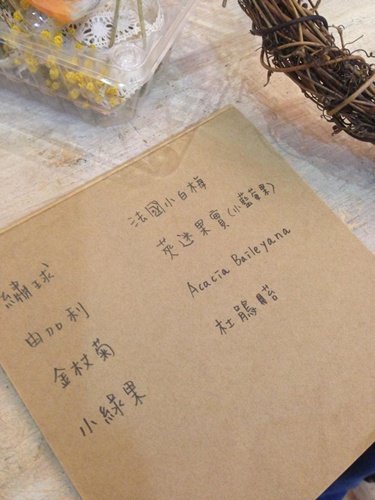 繡球
由加利
金杖菊
小綠果
法國小白梅
莢迷果實(小藍莓果)
Acacia Baileyana
杜鵑